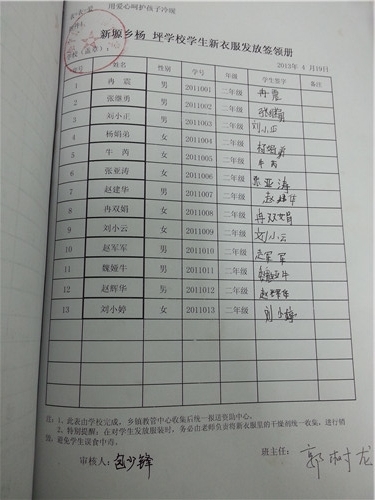 用爱心呵护孩子冷暖
新塬乡杨 坪学校学生新衣服发放签领册
2013年 4 月19日
姓名 性别 学号 年级 学生签字
1 冉 震 男 2011001 二年级 冉震
2 张继勇 男 2011002 二年级 张继勇
3 刘小正 男 2011003 二年级 刘小正
4 杨娟弟 女 2011004 二年级 杨娟弟
5 牛 芮 女 2011005 二年级 牛芮
6 张亚涛 女 2011006 二年级 亚涛
7 赵建华 男 2011007 二年级 赵建华
8 冉双娟 女 2011008 二年级 冉双娟
9 刘小云 女 2011009 二年级 刘小云
10 赵军军 男 2011010 二年级 赵军军
11 魏娅牛 男 2011011 二年级
12 赵辉华 男 2011012 二年级 赵辉华
13 刘小婷 女 2011013 二年级 刘小婷
注：1、此表由学校完成，乡镇教管中心收集后统一报送资助中心。
2、特别提醒：在对学生发放服装时，务必由老师负责将新衣服里的干燥剂统一收集、进行销
毁，避免学生误食中毒。
审核人：包少锋 班主任：郭树龙